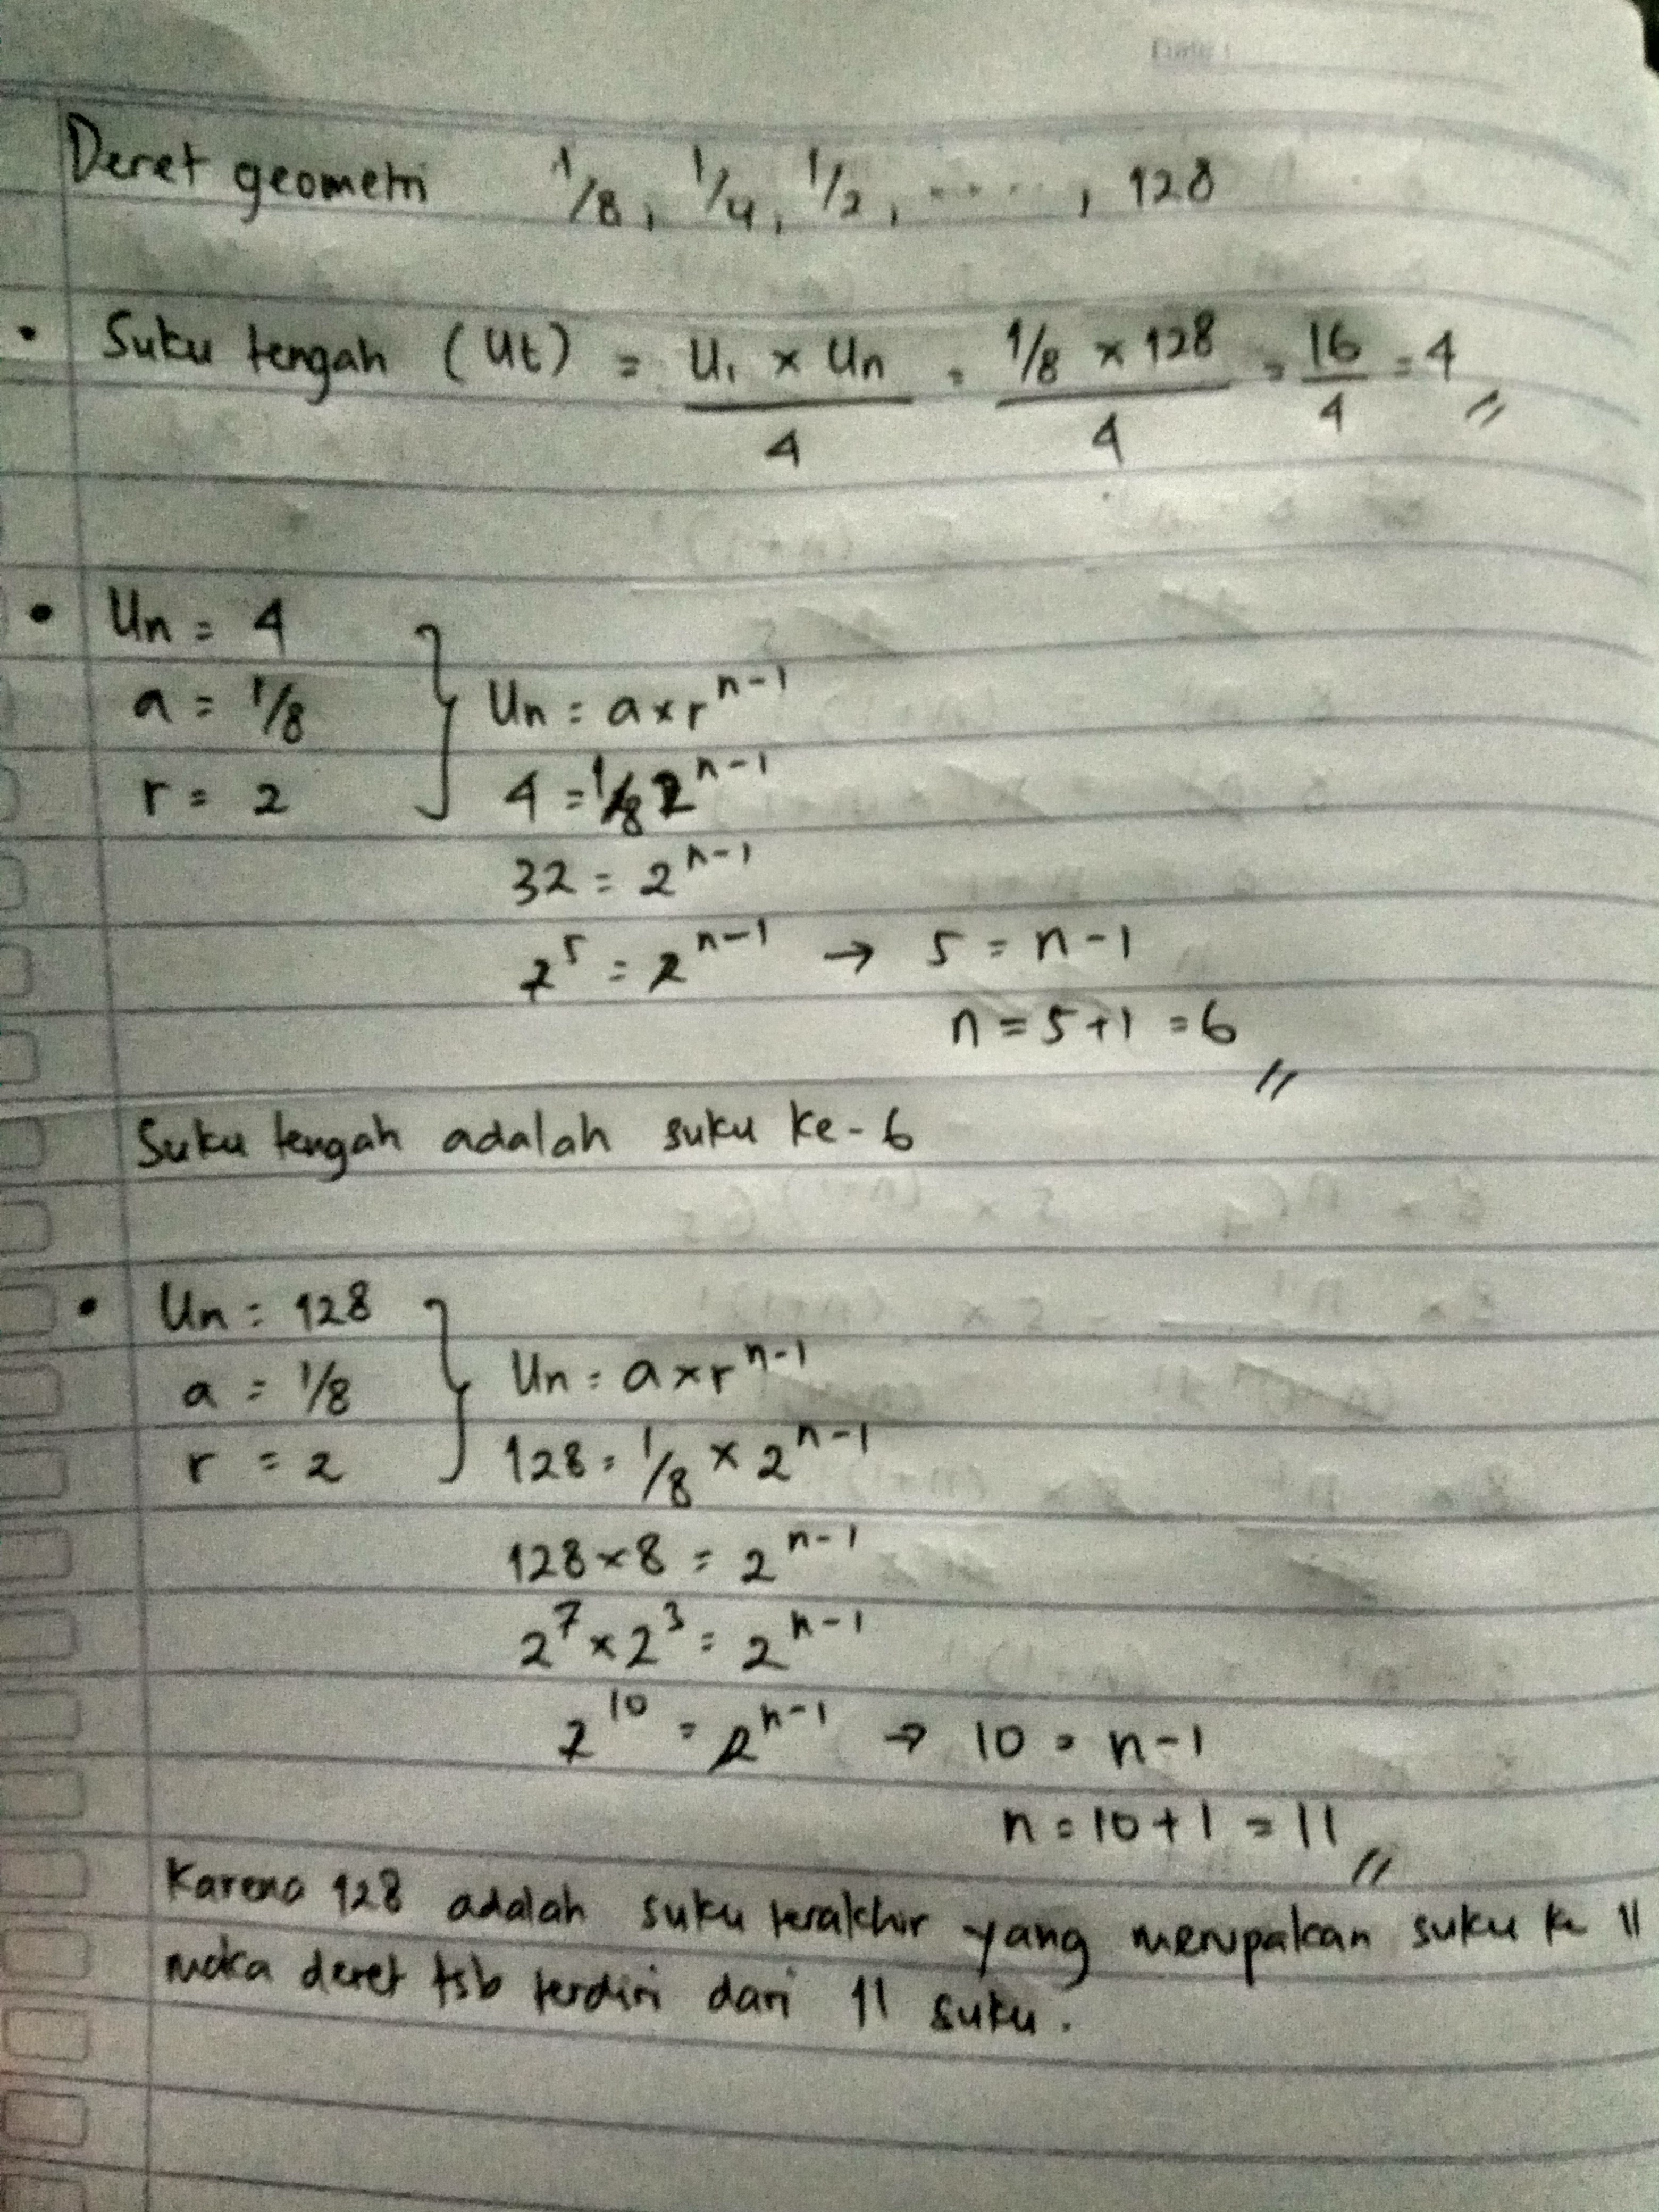 Date :
Deret geometri 1/8, 1/4, 1/2, ....., 128
• Suku tengah (Ut) = U₁ × Un / 4 = 1/8 × 128 / 4 = 16/4 = 4 //
• Un = 4
a = 1/8
r = 2
} Un = a × r^(n-1)
4 = 1/8 2^(n-1)
32 = 2^(n-1)
2^5 = 2^(n-1) → 5 = n-1
n = 5+1 = 6 //
Suku tengah adalah suku ke-6
• Un = 128
a = 1/8
r = 2
} Un = a × r^(n-1)
128 = 1/8 × 2^(n-1)
128 × 8 = 2^(n-1)
2^7 × 2^3 = 2^(n-1)
2^10 = 2^(n-1) → 10 = n-1
n = 10+1 = 11 //
Karena 128 adalah suku terakhir yang merupakan suku ke 11
maka deret tsb terdiri dari 11 suku.